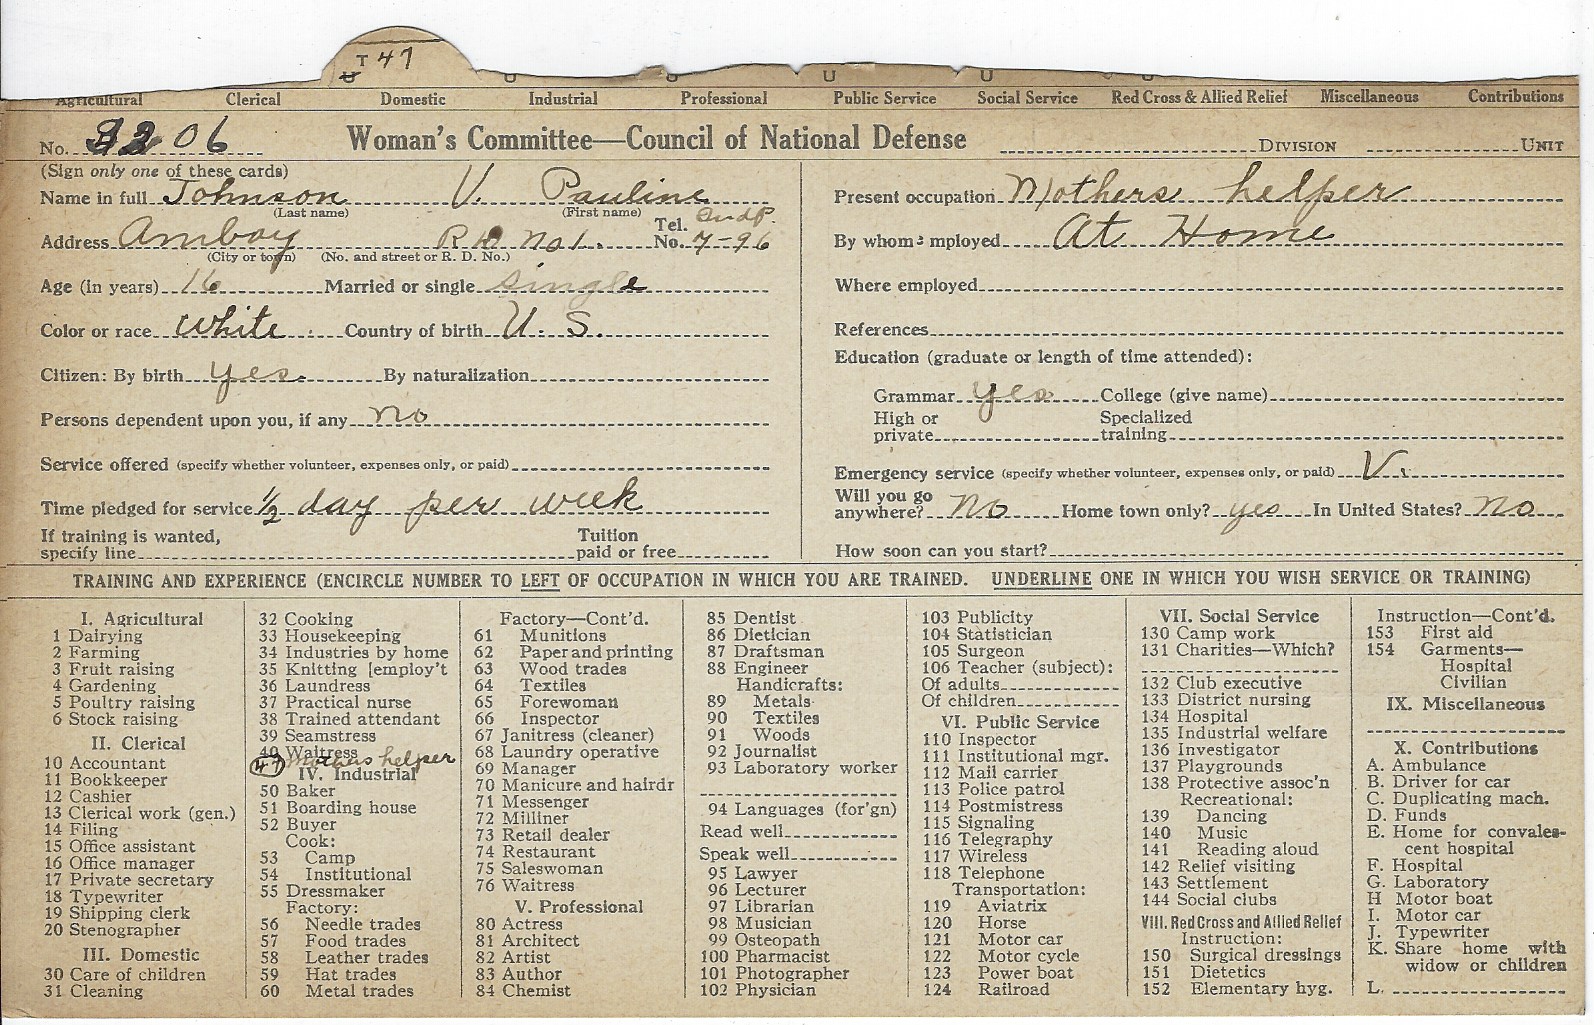 T 47
U U U U U U
Agricultural Clerical Domestic Industrial Professional Public Service Social Service Red Cross & Allied Relief Miscellaneous Contributions
No. 06 Woman's Committee—Council of National Defense DIVISION UNIT
(Sign only one of these cards)
Name in full Johnson V. Pauline
(Last name) (First name)
Address Amboy R D No 1. Tel. No. 7-96
(City or town) (No. and street or R. D. No.)
Age (in years) 16 Married or single single
Color or race White. Country of birth U. S.
Citizen: By birth yes. By naturalization
Persons dependent upon you, if any no
Service offered (specify whether volunteer, expenses only, or paid)
Time pledged for service 1/2 day per week
If training is wanted, specify line Tuition paid or free
Present occupation Mothers helper
By whom employed At Home
Where employed
References
Education (graduate or length of time attended):
Grammar yes College (give name)
High or private Specialized training
Emergency service (specify whether volunteer, expenses only, or paid) V.
Will you go anywhere? No Home town only? yes In United States? No
How soon can you start?
TRAINING AND EXPERIENCE (ENCIRCLE NUMBER TO LEFT OF OCCUPATION IN WHICH YOU ARE TRAINED. UNDERLINE ONE IN WHICH YOU WISH SERVICE OR TRAINING)
I. Agricultural
1 Dairying
2 Farming
3 Fruit raising
4 Gardening
5 Poultry raising
6 Stock raising
II. Clerical
10 Accountant
11 Bookkeeper
12 Cashier
13 Clerical work (gen.)
14 Filing
15 Office assistant
16 Office manager
17 Private secretary
18 Typewriter
19 Shipping clerk
20 Stenographer
III. Domestic
30 Care of children
31 Cleaning
32 Cooking
33 Housekeeping
34 Industries by home
35 Knitting [employ't
36 Laundress
37 Practical nurse
38 Trained attendant
39 Seamstress
40 Waitress
47 Mothers helper
IV. Industrial
50 Baker
51 Boarding house
52 Buyer
Cook:
53 Camp
54 Institutional
55 Dressmaker
Factory:
56 Needle trades
57 Food trades
58 Leather trades
59 Hat trades
60 Metal trades
Factory—Cont'd.
61 Munitions
62 Paper and printing
63 Wood trades
64 Textiles
65 Forewoman
66 Inspector
67 Janitress (cleaner)
68 Laundry operative
69 Manager
70 Manicure and hairdr
71 Messenger
72 Milliner
73 Retail dealer
74 Restaurant
75 Saleswoman
76 Waitress
V. Professional
80 Actress
81 Architect
82 Artist
83 Author
84 Chemist
85 Dentist
86 Dietician
87 Draftsman
88 Engineer
Handicrafts:
89 Metals
90 Textiles
91 Woods
92 Journalist
93 Laboratory worker
94 Languages (for'gn)
Read well
Speak well
95 Lawyer
96 Lecturer
97 Librarian
98 Musician
99 Osteopath
100 Pharmacist
101 Photographer
102 Physician
103 Publicity
104 Statistician
105 Surgeon
106 Teacher (subject):
Of adults
Of children
VI. Public Service
110 Inspector
111 Institutional mgr.
112 Mail carrier
113 Police patrol
114 Postmistress
115 Signaling
116 Telegraphy
117 Wireless
118 Telephone
Transportation:
119 Aviatrix
120 Horse
121 Motor car
122 Motor cycle
123 Power boat
124 Railroad
VII. Social Service
130 Camp work
131 Charities—Which?
132 Club executive
133 District nursing
134 Hospital
135 Industrial welfare
136 Investigator
137 Playgrounds
138 Protective assoc'n
Recreational:
139 Dancing
140 Music
141 Reading aloud
142 Relief visiting
143 Settlement
144 Social clubs
VIII. Red Cross and Allied Relief
Instruction:
150 Surgical dressings
151 Dietetics
152 Elementary hyg.
Instruction—Cont'd.
153 First aid
154 Garments—
Hospital
Civilian
IX. Miscellaneous
X. Contributions
A. Ambulance
B. Driver for car
C. Duplicating mach.
D. Funds
E. Home for convales-
cent hospital
F. Hospital
G. Laboratory
H Motor boat
I. Motor car
J. Typewriter
K. Share home with
widow or children
L.